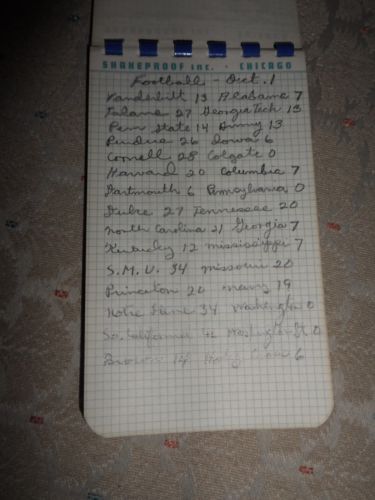 SHAKEPROOF inc. · CHICAGO
Football - Oct. 1
Vanderbilt 13 Alabama 7
Tulane 27 Georgia Tech 13
Penn State 14 Army 13
Purdue 26 Iowa 6
Cornell 28 Colgate 0
Harvard 20 Columbia 7
Dartmouth 6 Pennsylvania 0
Duke 27 Tennessee 20
North Carolina 21 Georgia 7
Kentucky 12 Mississippi 7
S.M.U. 34 Missouri 20
Princeton 20 Navy 19
Notre Dame 34 0
So. California 42 0
Brown 14 Holy Cross 6